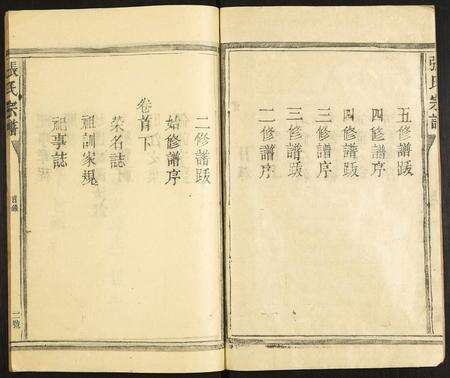 張氏宗譜
五修譜跋
四修譜序
四修譜跋
三修譜序
三修譜跋
二修譜序
二修譜跋
始修譜序
卷首下
榮名誌
祖訓家規
祀事誌
張氏宗譜
目錄
三號